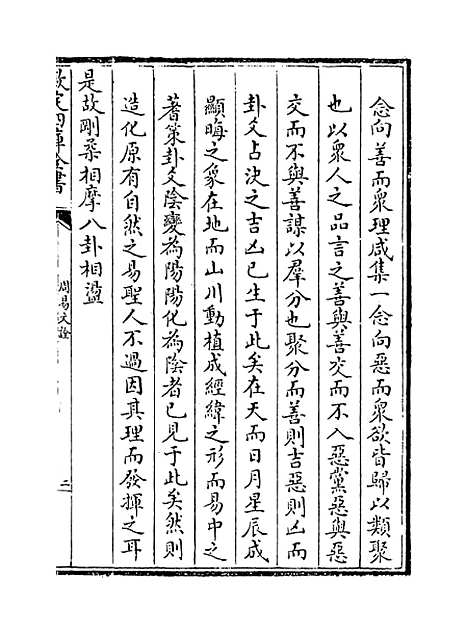 念向善而衆理咸集一念向惡而衆欲皆歸以類聚
也以衆人之品言之善與善交而不入惡黨惡與惡
交而不與善謀以羣分也聚分而善則吉惡則凶而
卦爻占决之吉凶已生于此矣在天而日月星辰成
顯晦之象在地而山川動植成經緯之形而易中之
蓍策卦爻陰變為陽陽化為陰者已見于此矣然則
造化原有自然之易聖人不過因其理而發揮之耳
是故剛柔相摩八卦相盪
欽定四庫全書
周易文詮
二